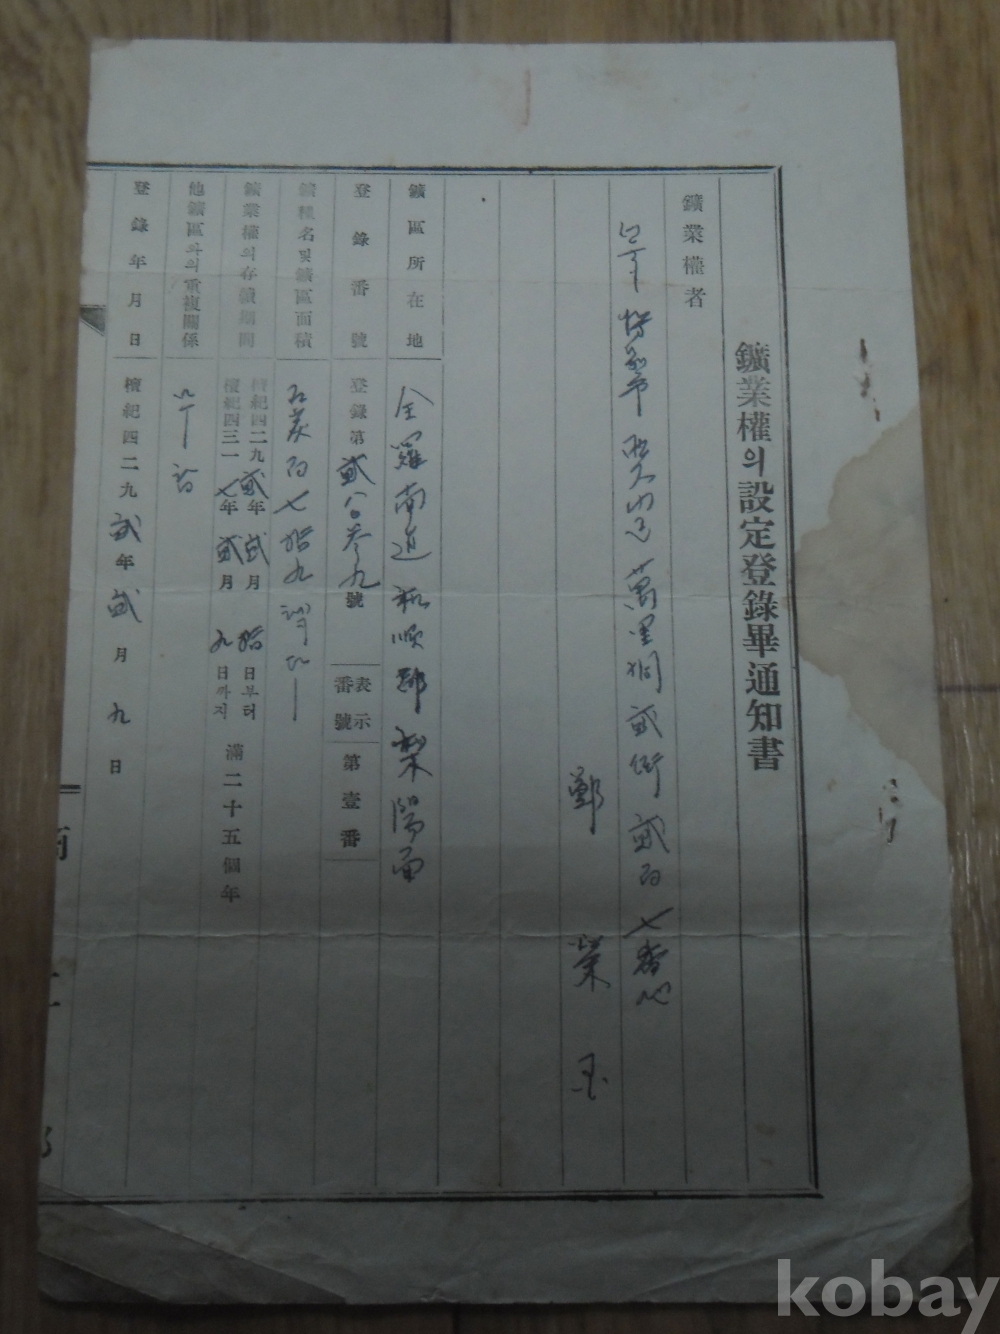 鑛業權의設定登錄畢通知書
鑛業權者
서울特別市 龍山區 萬里洞 貳街 貳百七番地
鄭 榮
鑛區所在地 全羅南道 和順郡 梨陽面
登錄番號 登錄第貳八〇參九號 表示番號 第壹番
鑛種名및鑛區面積 石炭 百七拾九
鑛業權의存續期間 檀紀四二九貳年貳月拾日부터
檀紀四三一七年貳月九日까지 滿二十五個年
他鑛區와의重複關係
登錄年月日 檀紀四二九貳年貳月九日
商工部
kobay